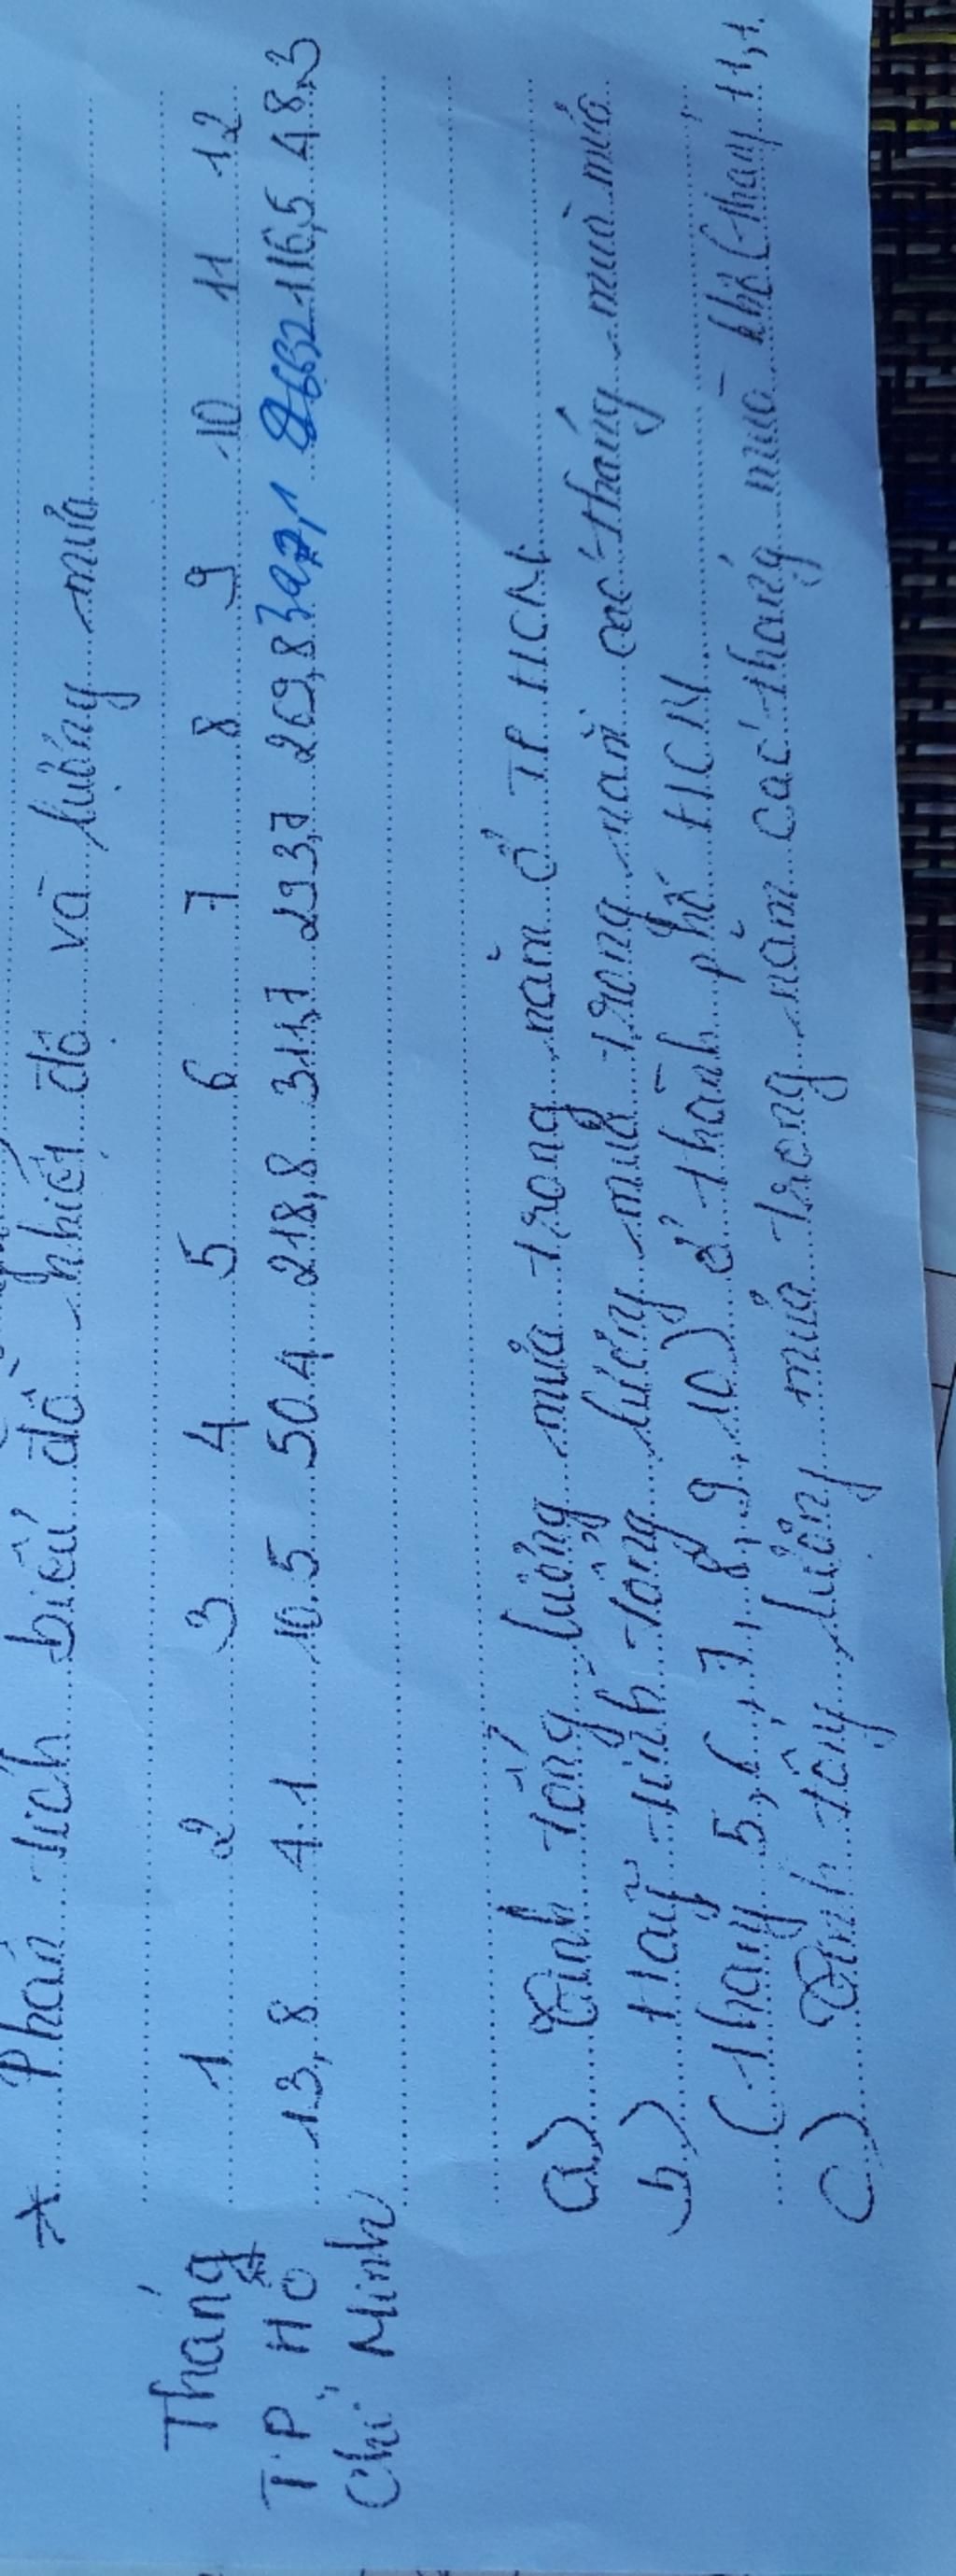 * Phân tích biểu đồ nhiệt độ và lượng mưa
Tháng 1 2 3 4 5 6 7 8 9 10 11 12
T.P Hồ 13,8 4.1 10.5 50.4 218,8 311,7 293,7 269,8 327,1 116,5 48.3
Chí Minh
a) Tính tổng lượng mưa trong năm ở TP. HCM
b) Hãy tính tổng lượng mưa trong năm các tháng mùa mưa
(tháng 5, 6, 7, 8, 9, 10) ở thành phố HCM
c) Tính tổng lượng mưa trong năm các tháng mùa khô (tháng 11, 1